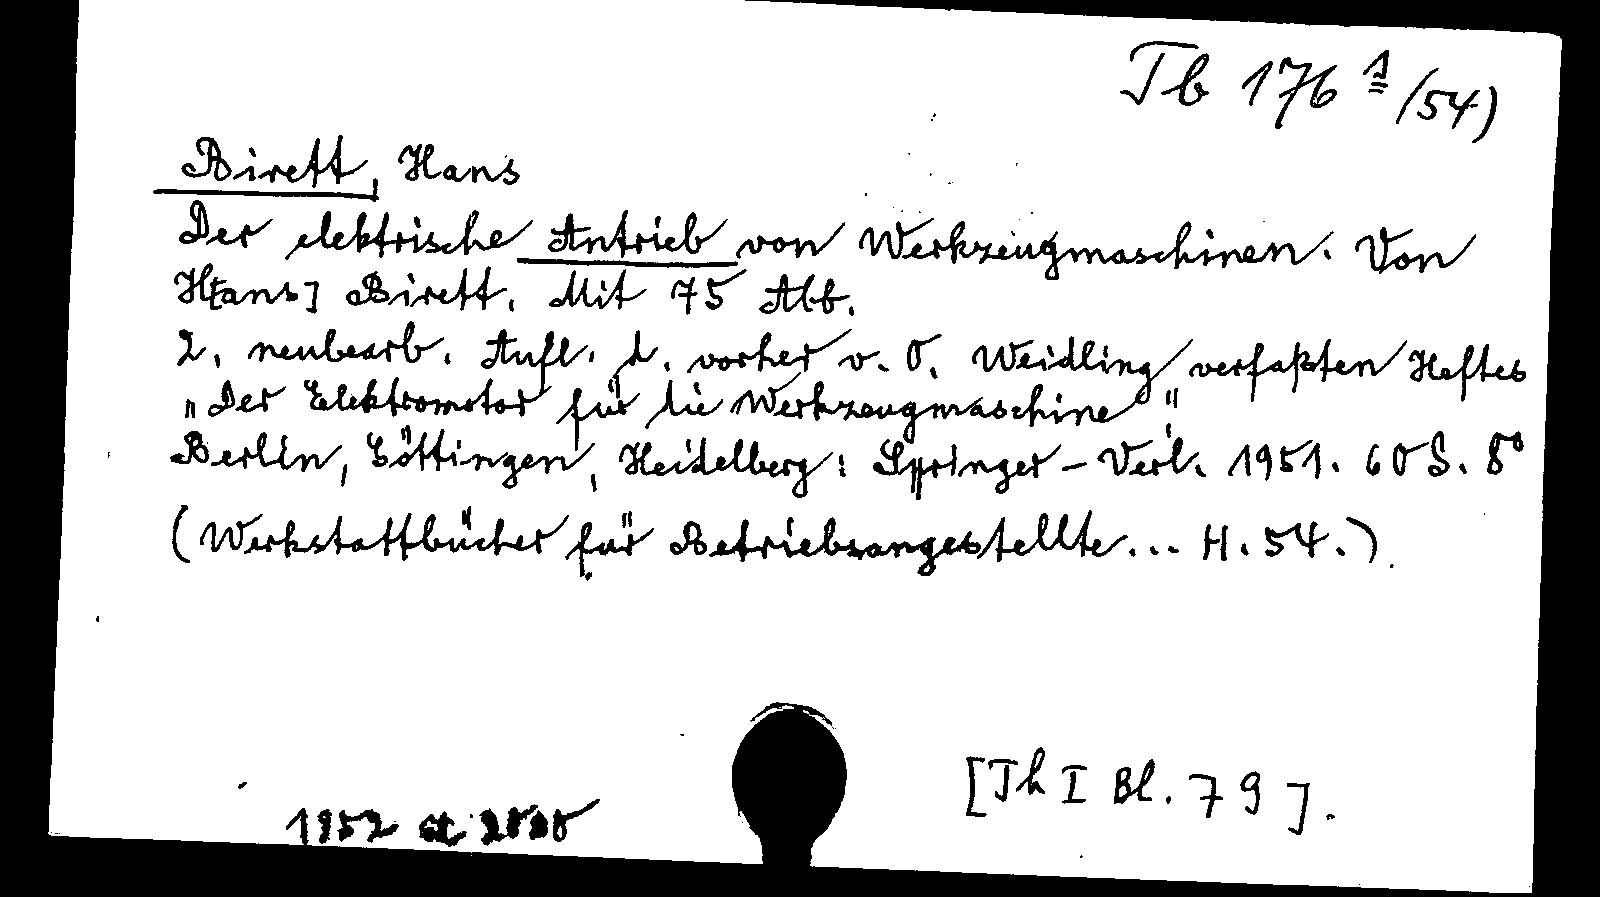 Tb 176 1/(54)
Birett, Hans
Der elektrische Antrieb von Werkzeugmaschinen. Von
H[ans] Birett. Mit 75 Abb.
2. neubearb. Aufl. d. vorher v. O. Weidling verfaßten Heftes
"Der Elektromotor für die Werkzeugmaschine"
Berlin, Göttingen, Heidelberg: Springer-Verl. 1951. 60 S. 8°
(Werkstattbücher für Betriebsangestellte... H. 54.)
[Th I Bl. 79].
1952